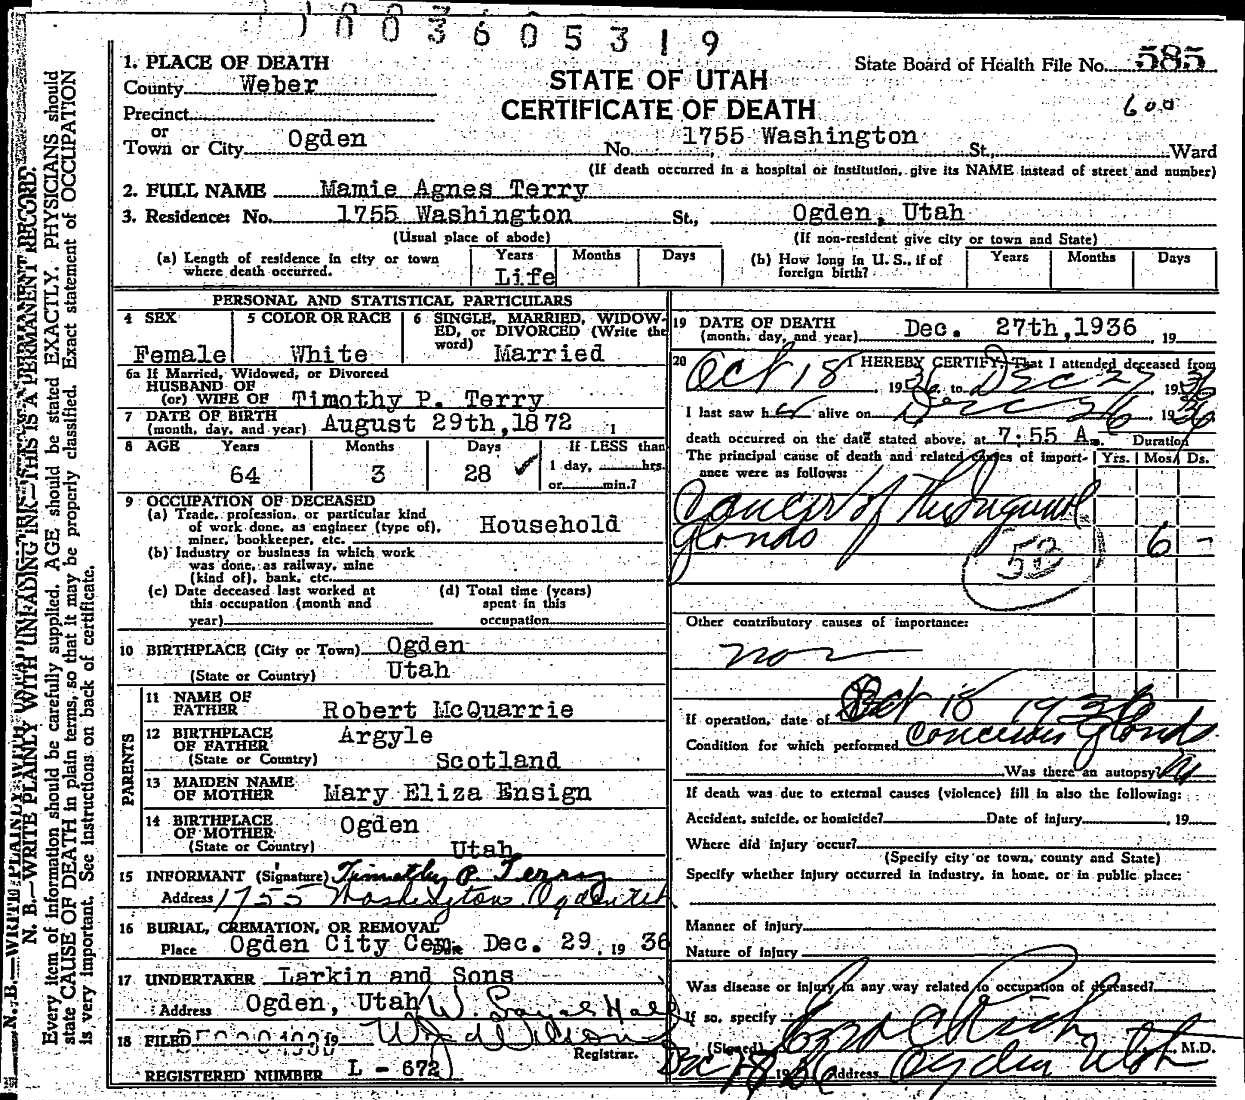 1003605319
1. PLACE OF DEATH
County Weber
Precinct
or
Town or City Ogden
STATE OF UTAH
CERTIFICATE OF DEATH
State Board of Health File No. 585
600
No. 1755 Washington St., Ward
(If death occurred in a hospital or institution, give its NAME instead of street and number)
2. FULL NAME Mamie Agnes Terry
3. Residence: No. 1755 Washington St., Ogden, Utah
(Usual place of abode) (If non-resident give city or town and State)
(a) Length of residence in city or town where death occurred. Years Life Months Days
(b) How long in U. S., if of foreign birth? Years Months Days
PERSONAL AND STATISTICAL PARTICULARS
4 SEX Female
5 COLOR OR RACE White
6 SINGLE, MARRIED, WIDOWED, or DIVORCED (Write the word) Married
6a If Married, Widowed, or Divorced
HUSBAND OF
(or) WIFE OF Timothy P. Terry
7 DATE OF BIRTH
(month, day, and year) August 29th, 1872
8 AGE Years 64 Months 3 Days 28 If LESS than 1 day, hrs. or min.?
9 OCCUPATION OF DECEASED
(a) Trade, profession, or particular kind of work done, as engineer (type of), miner, bookkeeper, etc. Household
(b) Industry or business in which work was done, as railway, mine (kind of), bank, etc.
(c) Date deceased last worked at this occupation (month and year)
(d) Total time (years) spent in this occupation
10 BIRTHPLACE (City or Town) Ogden
(State or Country) Utah
PARENTS
11 NAME OF FATHER Robert McQuarrie
12 BIRTHPLACE OF FATHER Argyle
(State or Country) Scotland
13 MAIDEN NAME OF MOTHER Mary Eliza Ensign
14 BIRTHPLACE OF MOTHER Ogden
(State or Country) Utah
15 INFORMANT (Signature) Timothy P. Terry
Address 1755 Washington Ogden Utah
16 BURIAL, CREMATION, OR REMOVAL
Place Ogden City Cem. Date Dec. 29, 1936
17 UNDERTAKER Larkin and Sons
Address Ogden, Utah
18 FILED 19
Registrar.
REGISTERED NUMBER L - 672
19 DATE OF DEATH
(month, day, and year) Dec. 27th, 1936, 19
20 I HEREBY CERTIFY, That I attended deceased from
Oct 18, 1936, to Dec 27, 1936
I last saw her alive on Dec 26, 1936
death occurred on the date stated above, at 7:55 A. Duration
The principal cause of death and related causes of importance were as follows: Yrs. Mos. Ds.
Cancer of The Inguinal
Glands 6 -
53
Other contributory causes of importance:
non
If operation, date of Oct 18 1936
Condition for which performed Cancerous Glands
Was there an autopsy? No
If death was due to external causes (violence) fill in also the following:
Accident, suicide, or homicide? Date of injury, 19
Where did injury occur?
(Specify city or town, county and State)
Specify whether injury occurred in industry, in home, or in public place:
Manner of injury
Nature of injury
Was disease or injury in any way related to occupation of deceased?
If so, specify
(Signed) Ezra C Rich, M.D.
Dec 28 1936 Address Ogden Utah
N. B.—WRITE PLAINLY WITH UNFADING INK—THIS IS A PERMANENT RECORD.
Every item of information should be carefully supplied. AGE should be stated EXACTLY. PHYSICIANS should
state CAUSE OF DEATH in plain terms, so that it may be properly classified. Exact statement of OCCUPATION
is very important. See instructions on back of certificate.